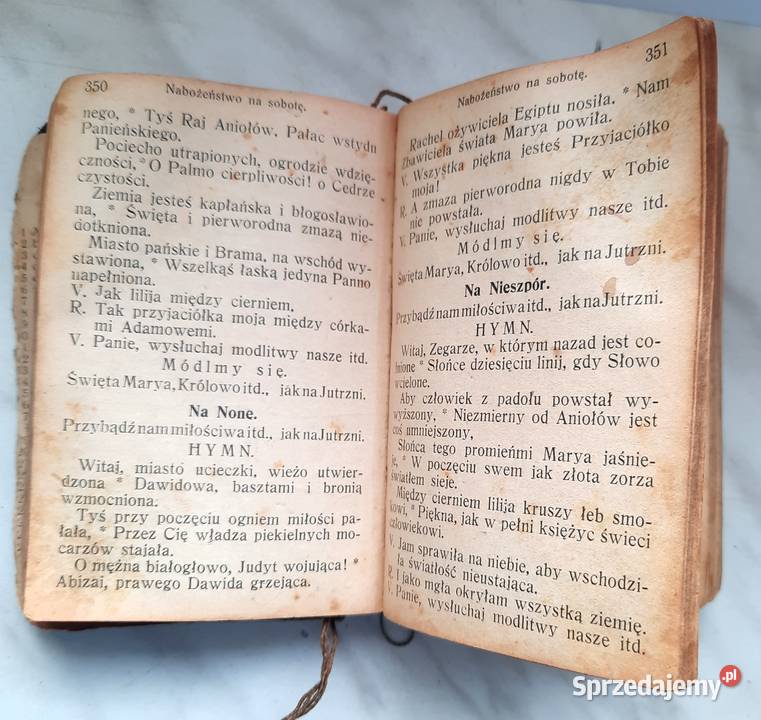 350 Nabożeństwo na sobotę.
nego, * Tyś Raj Aniołów, Pałac wstydu
Panieńskiego.
Pociecho utrapionych, ogrodzie wdzię-
czności, * O Palmo cierpliwości! o Cedrze
czystości.
Ziemia jesteś kapłańska i błogosławio-
na, * Święta i pierworodna zmazą nie-
dotkniona.
Miasto pańskie i Brama, na wschód wy-
stawiona, * Wszelkąś łaską jedyna Panno
napełniona.
V. Jak lilija między cierniem,
R. Tak przyjaciółka moja między córka-
mi Adamowemi.
V. Panie, wysłuchaj modlitwy nasze itd.
Módlmy się.
Święta Marya, Królowo itd., jak na Jutrzni.
Na Nonę.
Przybądź nam miłościwa itd., jak na Jutrzni.
HYMN.
Witaj, miasto ucieczki, wieżo utwier-
dzona * Dawidowa, basztami i bronią
wzmocniona.
Tyś przy poczęciu ogniem miłości pa-
łała, * Przez Cię władza piekielnych mo-
carzów stajała.
O mężna białogłowo, Judyt wojująca! *
Abizai, prawego Dawida grzejąca.
Nabożeństwo na sobotę. 351
Rachel ożywiciela Egiptu nosiła. * Nam
Zbawiciela świata Marya powiła.
V. Wszystka piękna jesteś Przyjaciółko
moja!
R. A zmaza pierworodna nigdy w Tobie
nie powstała.
V. Panie, wysłuchaj modlitwy nasze itd.
Módlmy się.
Święta Marya, Królowo itd., jak na Jutrzni.
Na Nieszpór.
Przybądź nam miłościwa itd., jak na Jutrzni.
HYMN.
Witaj, Zegarze, w którym nazad jest co-
fnione * Słońce dziesięciu linij, gdy Słowo
wcielone.
Aby człowiek z padołu powstał wy-
wyższony, * Niezmierny od Aniołów jest
coś umniejszony,
Słońca tego promieńmi Marya jaśnie-
je, * W poczęciu swem jak złota zorza
światłem sieje.
Między cierniem lilija kruszy łeb smo-
kowi, * Piękna, jak w pełni księżyc świeci
człowiekowi.
V. Jam sprawiła na niebie, aby wschodzi-
ła światłość nieustająca.
R. I jako mgła okryłam wszystką ziemię.
V. Panie, wysłuchaj modlitwy nasze itd.
Sprzedajemy.pl